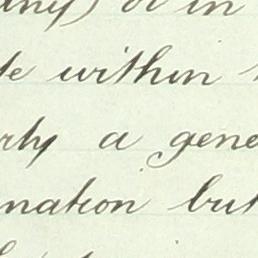 any) or in
te within
rly a gene
nation but